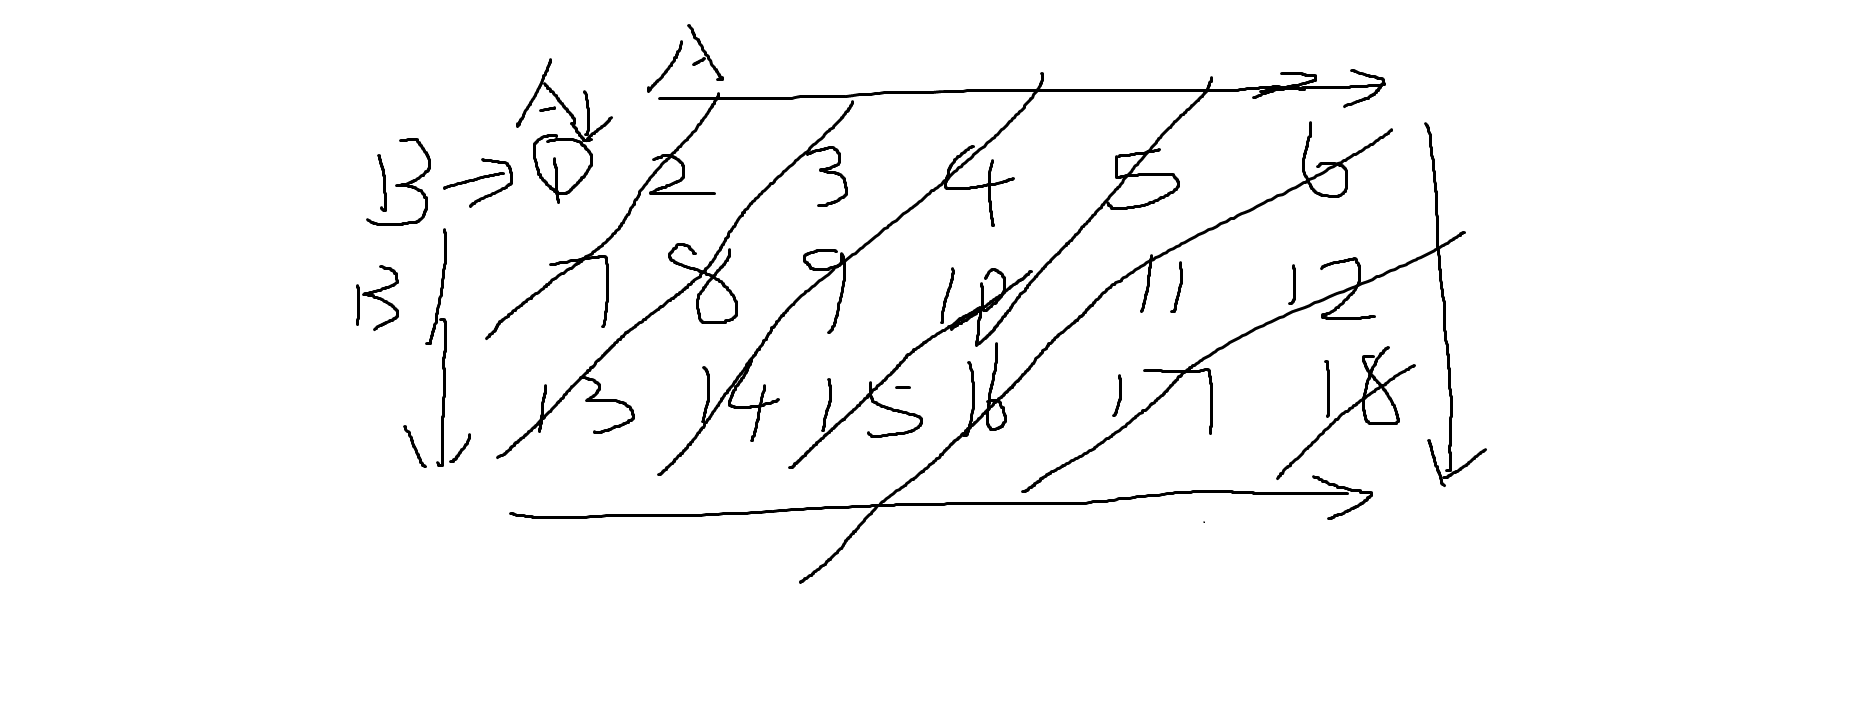 A
A
B 1 2 3 4 5 6
B 7 8 9 10 11 12
13 14 15 16 17 18